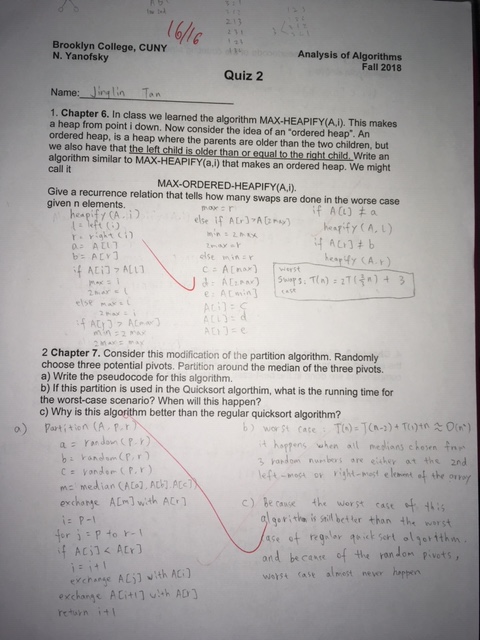 16/16
Brooklyn College, CUNY
N. Yanofsky
Analysis of Algorithms
Fall 2018
Quiz 2
Name: Jinglin Tan
1. Chapter 6. In class we learned the algorithm MAX-HEAPIFY(A,i). This makes
a heap from point i down. Now consider the idea of an "ordered heap". An
ordered heap, is a heap where the parents are older than the two children, but
we also have that the left child is older than or equal to the right child. Write an
algorithm similar to MAX-HEAPIFY(a,i) that makes an ordered heap. We might
call it
MAX-ORDERED-HEAPIFY(A,i).
Give a recurrence relation that tells how many swaps are done in the worse case
given n elements.
heapify (A, i)
l = left (i)
r = right (i)
a = A[l]
b = A[r]
if A[i] > A[l]
max = i
2max = l
else max = l
2max = i
if A[r] > A[max]
min = 2max
2max = max
max = r
else if A[r] > A[2max]
min = 2max
2max = r
else min = r
c = A[max]
d = A[2max]
e = A[min]
A[i] = c
A[l] = d
A[r] = e
if A[l] ≠ a
heapify (A, l)
if A[r] ≠ b
heapify (A, r)
worst
swaps: T(n) = 2T(⅔n) + 3
case
2 Chapter 7. Consider this modification of the partition algorithm. Randomly
choose three potential pivots. Partition around the median of the three pivots.
a) Write the pseudocode for this algorithm.
b) If this partition is used in the Quicksort algorthim, what is the running time
for the worst-case scenario? When will this happen?
c) Why is this algorithm better than the regular quicksort algorithm?
a) Partition (A, p, r)
a = random (p, r)
b = random (p, r)
c = random (p, r)
m = median (A[a], A[b], A[c])
exchange A[m] with A[r]
i = p-1
for j = p to r-1
if A[j] < A[r]
i = i+1
exchange A[j] with A[i]
exchange A[i+1] with A[r]
return i+1
b) worst case: T(n) = T(n-2) + T(1) + n ≈ O(n²)
it happens when all medians chosen from
3 random numbers are either at the 2nd
left-most or right-most element of the array
c) Because the worst case of this
algorithm is still better than the worst
case of regular quick sort algorithm.
and because of the random pivots,
worst case almost never happen